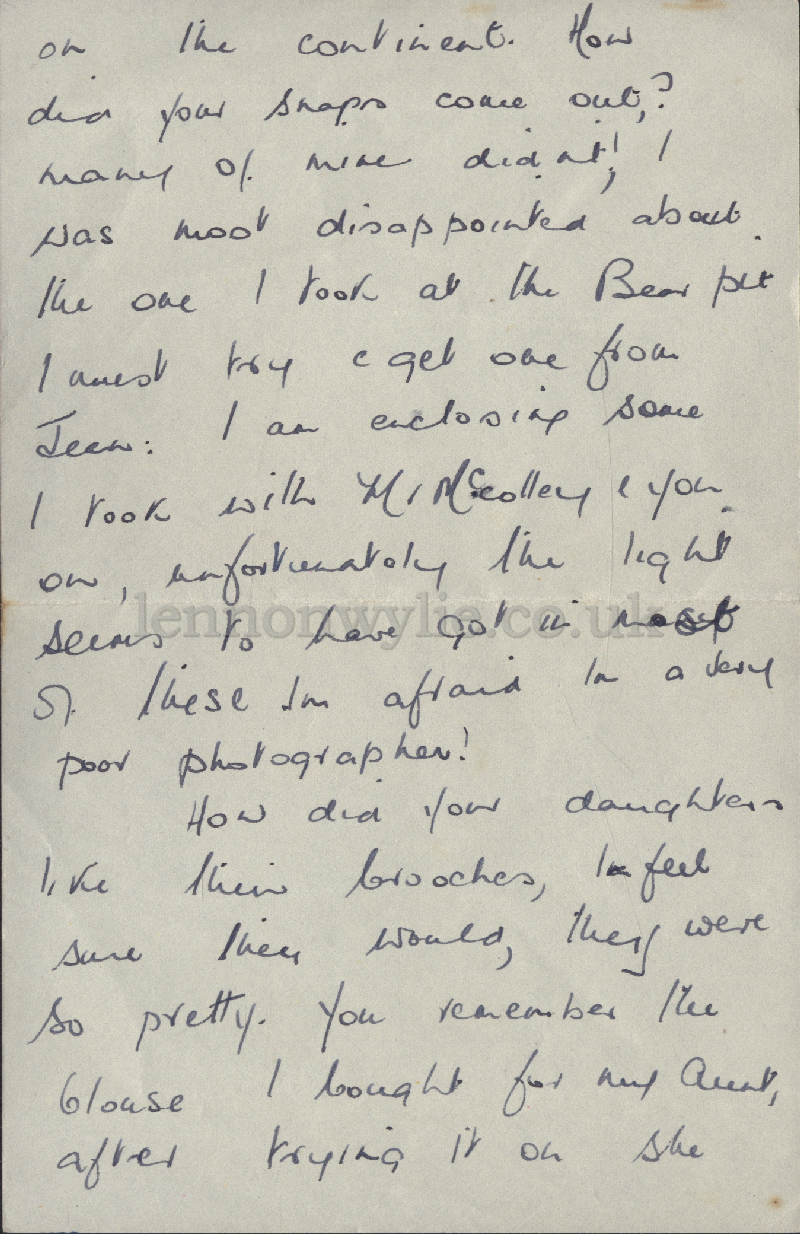 on the continent. How
did your snaps come out,?
many of mine did.nt!, I
was most disappointed about.
the one I took at the Bear pit
I must try & get one from
Jean. I am enclosing some
I took with Mr McColley & you
on, unfortunately the light
seems to have got in most
of these Im afraid Im a very
poor photographer!
How did your daughters
like their brooches, Im feel
sure they would, they were
so pretty. You remember the
blouse I bought for my Aunt,
after trying it on she
lennonwylie.co.uk